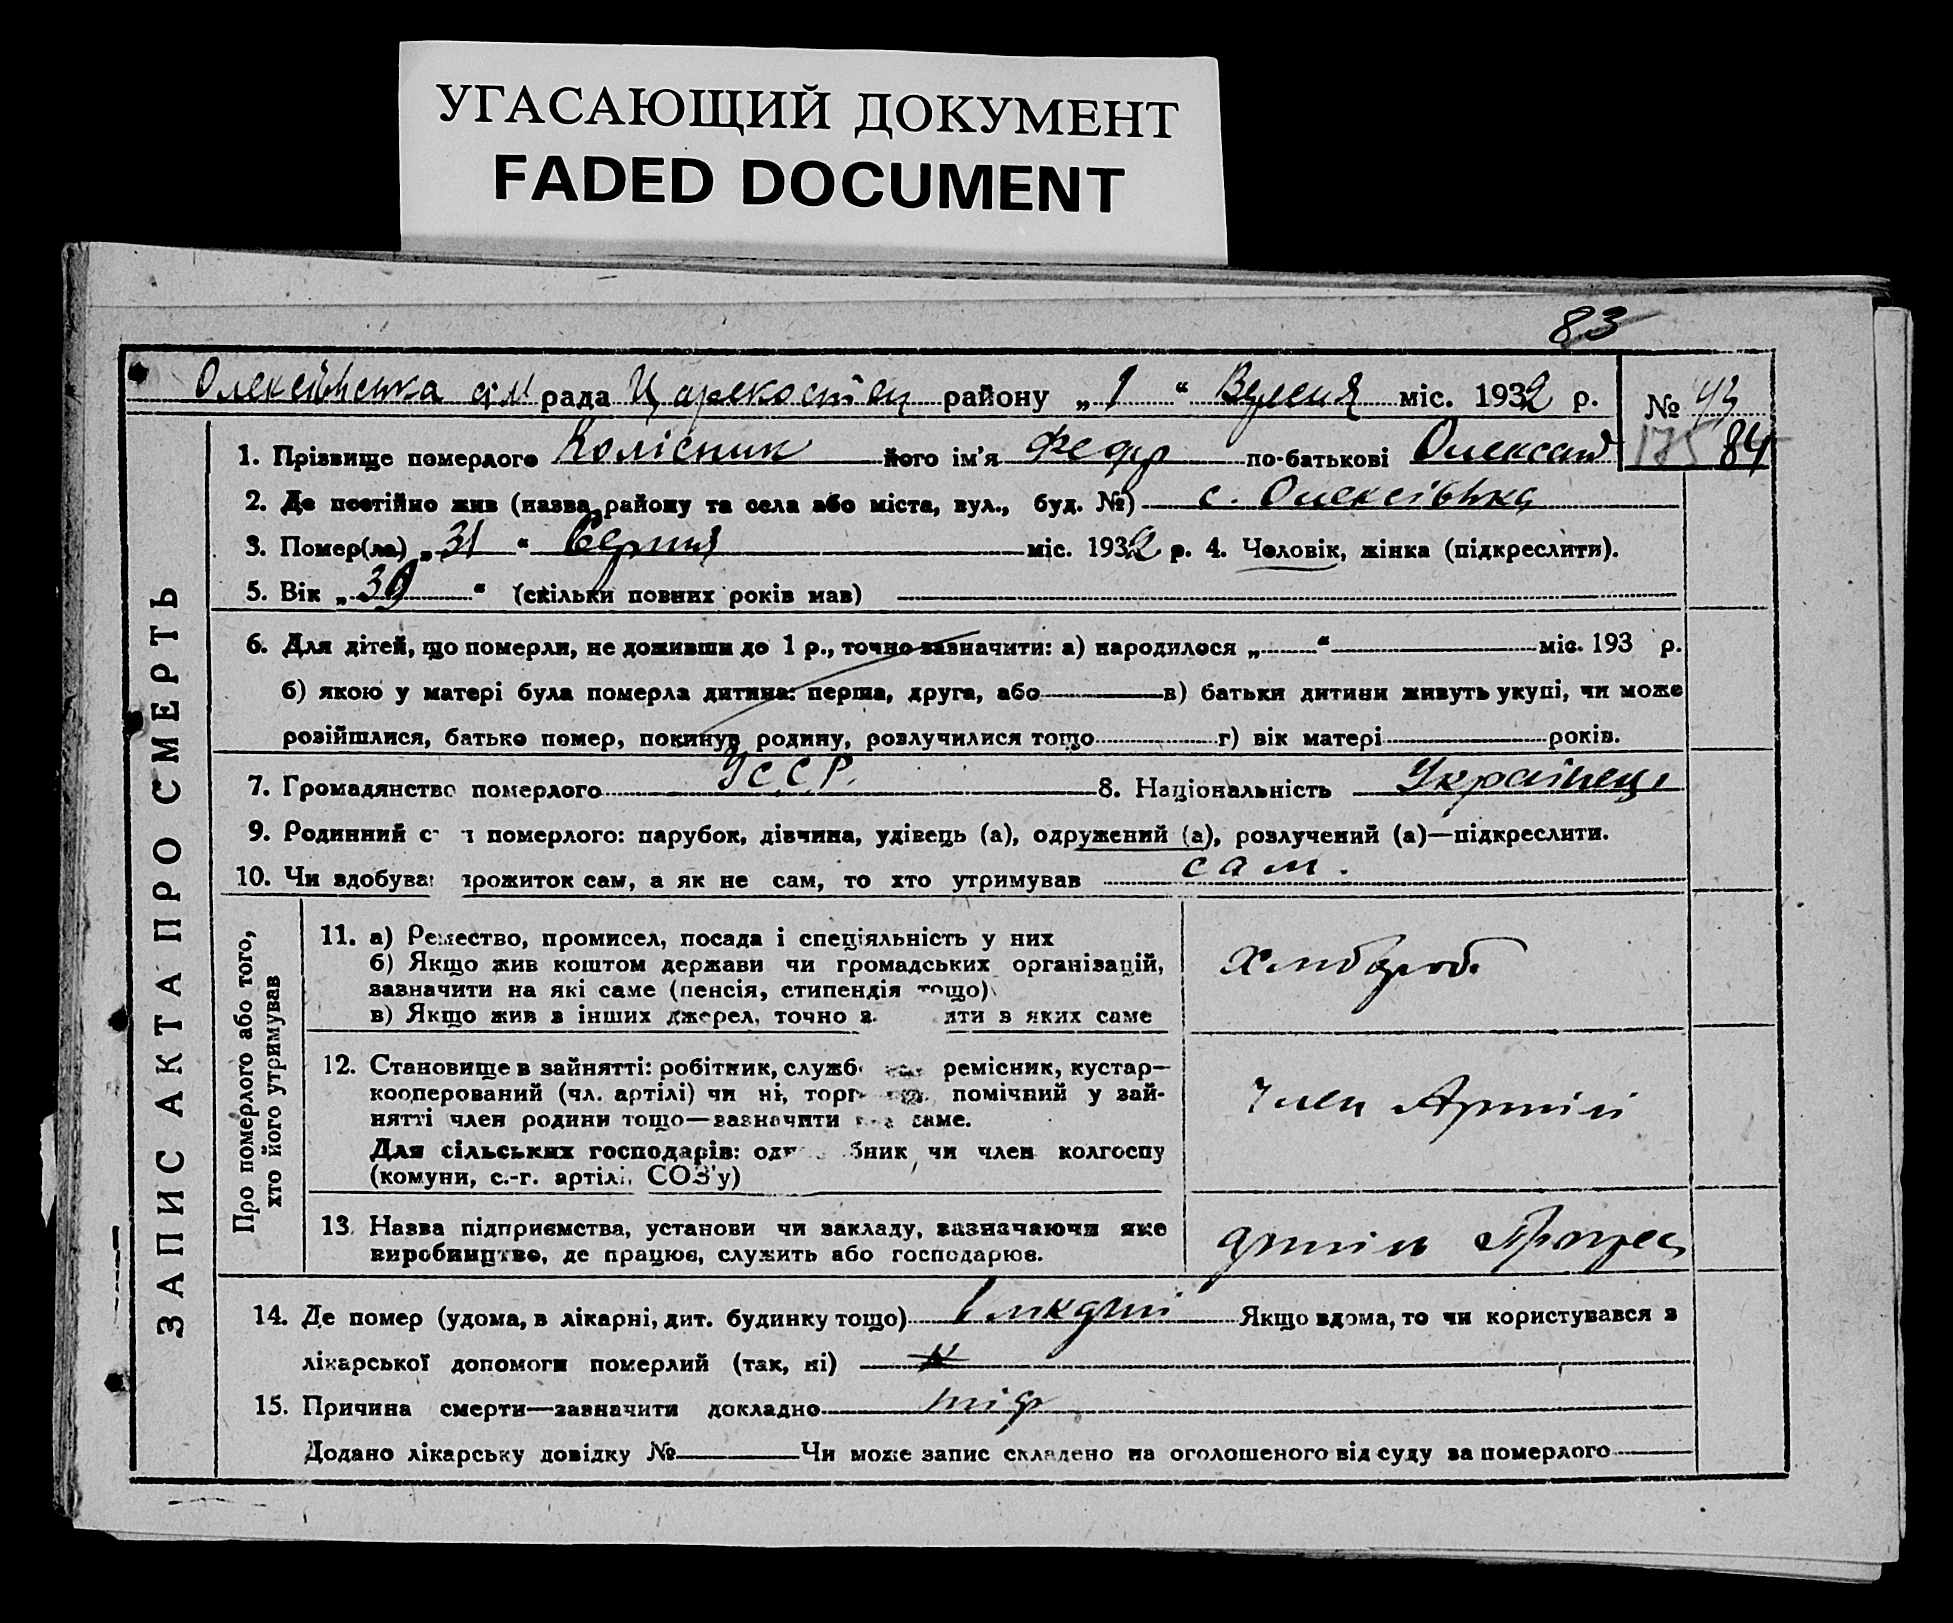 УГАСАЮЩИЙ ДОКУМЕНТ
FADED DOCUMENT
83
Олексіївська рада району „1“ міс. 1932 р. № 43
175 84
1. Прізвище померлого Колісник його ім'я Федір по-батькові Олександ
2. Де постійно жив (назва району та села або міста, вул., буд. №) с. Олексіївка
3. Помер(ла) „31“ Серпня міс. 1932 р. 4. Чоловік, жінка (підкреслити).
5. Вік „39“ (скільки повних років мав)
6. Для дітей, що померли, не доживши до 1 р., точно зазначити: а) народилося „ “ міс. 193 р.
б) якою у матері була померла дитина: перша, друга, або в) батьки дитини живуть укупі, чи може
розійшлися, батько помер, покинув родину, розлучилися тощо г) вік матері років.
7. Громадянство померлого УССР. 8. Національність Українець
9. Родинний с н померлого: парубок, дівчина, удівець (а), одружений (а), розлучений (а)—підкреслити.
10. Чи здобував прожиток сам, а як не сам, то хто утримував сам.
ЗАПИС АКТА ПРО СМЕРТЬ
Про померлого або того,
хто його утримував
11. а) Ремество, промисел, посада і спеціяльність у них
б) Якщо жив коштом держави чи громадських організацій,
зазначити на які саме (пенсія, стипендія тощо)
в) Якщо жив з інших джерел, точно з яти в яких саме
Хлібороб
12. Становище в зайнятті: робітник, служб ремісник, кустар—
кооперований (чл. артілі) чи ні, торг помічний у зай-
нятті член родини тощо—зазначити саме.
Для сільських господарів: од бник чи член колгоспу
(комуни, с.-г. артілі, СОЗ'у)
член Артілі
13. Назва підприємства, установи чи закладу, зазначаючи яке
виробництво, де працює, служить або господарює.
14. Де помер (удома, в лікарні, дит. будинку тощо) Якщо вдома, то чи користувався з
лікарської допомоги померлий (так, ні)
15. Причина смерти—зазначити докладно тіф
Додано лікарську довідку № Чи може запис складено на оголошеного від суду за померлого